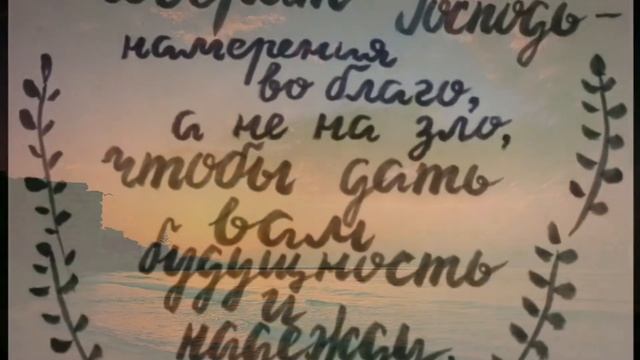 говорит Господь –
намерения
во благо,
а не на зло,
чтобы дать
вам
будущность
и
надежду.